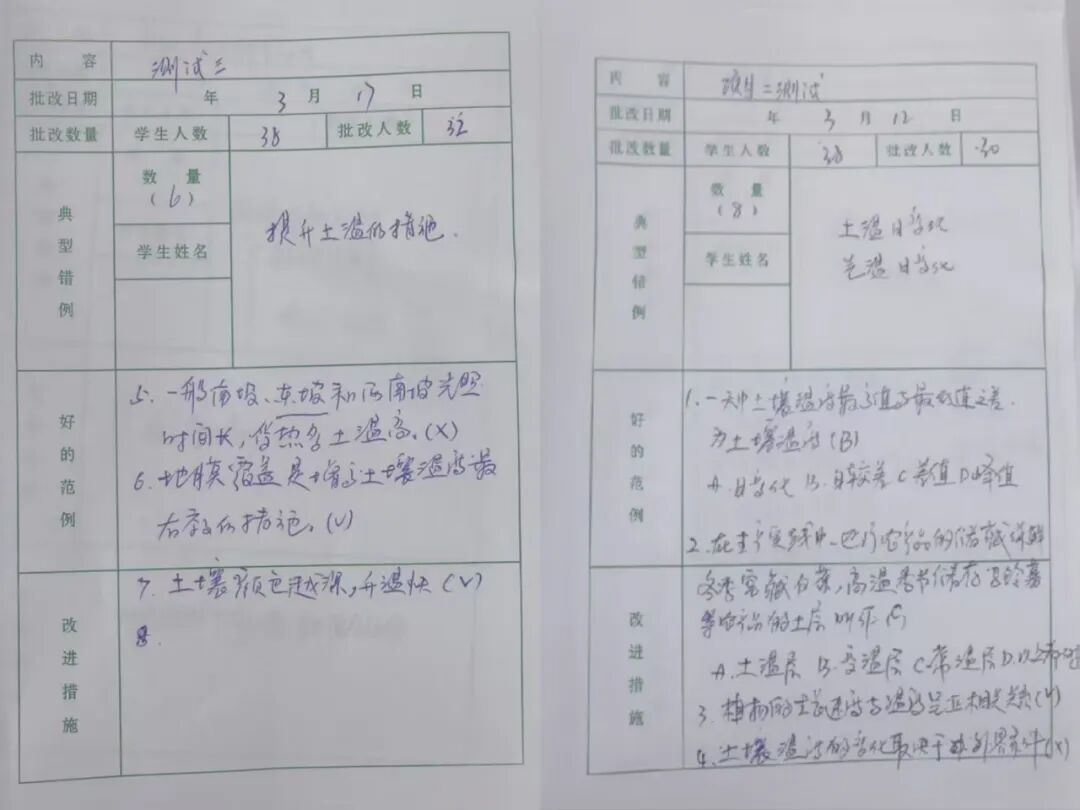 内 容 测试三
批改日期 年 3 月 17 日
批改数量 学生人数 38 批改人数 32
典型错例
数 量
(6)
学生姓名
提升土温的措施.
好的范例
5. 一般南坡、东坡和西南坡光照
时间长,得热多土温高。(X)
6. 地膜覆盖是增高土壤温度最
有效的措施。(V)
改进措施
7. 土壤颜色越深,升温快(V)
8.
内 容 项目二测试
批改日期 年 3 月 12 日
批改数量 学生人数 38 批改人数 30
典型错例
数 量
(8)
学生姓名
土温日变化
气温日变化
好的范例
1. 一天中土壤温度最高值与最低值之差.
为土壤温度(B)
A. 日变化 B. 日较差 C 差值 D 峰值
2. 在生产实践中,进行农产品的储藏
改进措施
冬季窖藏白菜,高温季节储存
等农产品的土层叫作
A. 土温层 B. 变温层 C. 常温层 D. 以上都
3. 植物的生长速度与温度呈正相关(V)
4. 土壤温度的变化取决于外界条件(X)